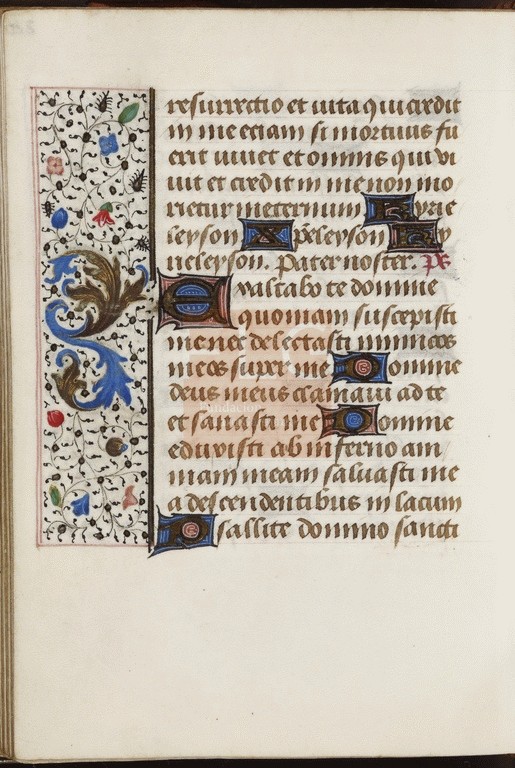 resurrectio et uita qui credit
in me eciam si mortuus fu
erit uiuet et omnis qui vi
uit et credit in me non mo
rietur ineternum Kyrie
leyson Xp̄eleyson Ky
rieleyson. Pater noster. ps̄
Exaltabo te domine
quoniam suscepisti
me nec delectasti inimicos
meos super me Domine
deus meus clamaui ad te
et sanasti me Domine
eduxisti ab inferno am
mam meam saluasti me
a descendentibus in lacum
Psallite domino sancti